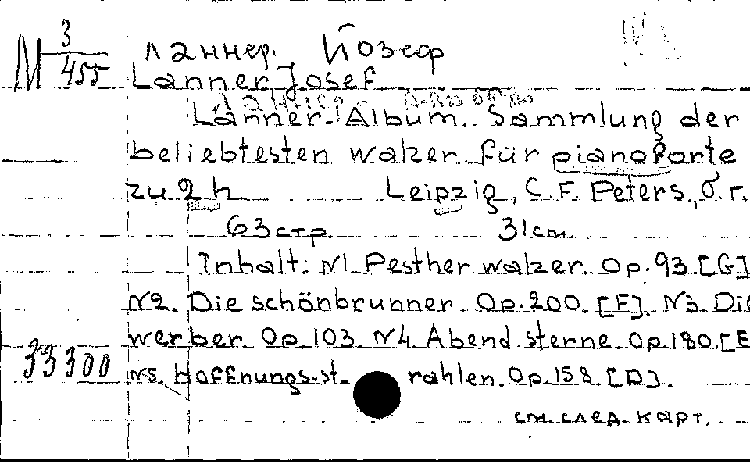 М 3/455
Ланнер. Йозеф
Lanner Josef
Lanner-Album. Sammlung der
beliebtesten walzer für pianoforte
zu 2 h Leipzig, C. F. Peters, б.г.
63 стр 31 см
Inhalt: N1. Pesther walzer. Op. 93 [G]
N2. Die schönbrunner. Op. 200. [F]. N3. Die
werber. Op. 103. N4. Abend sterne. Op. 180. [E
33300
N5. Hoffnungs-st rahlen. Op. 158 [D].
см. след. карт.